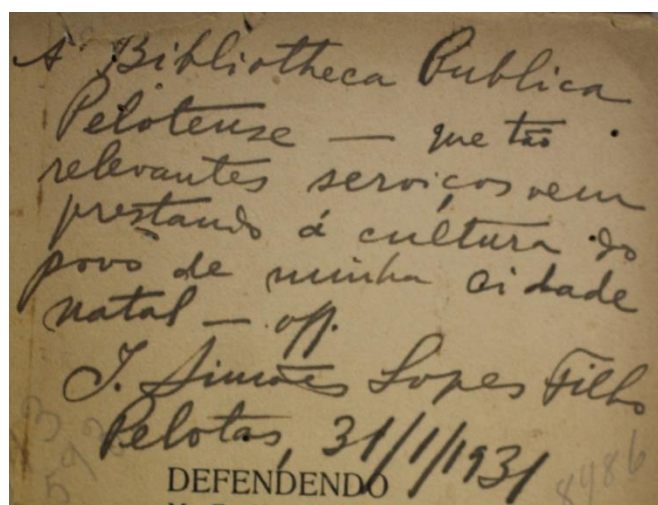 A Bibliotheca Publica
Pelotense — que tão
relevantes serviços vem
prestando á cultura do
povo de minha cidade
natal — off.
J. Simões Lopes Filho
Pelotas, 31/1/1931
DEFENDENDO
8486